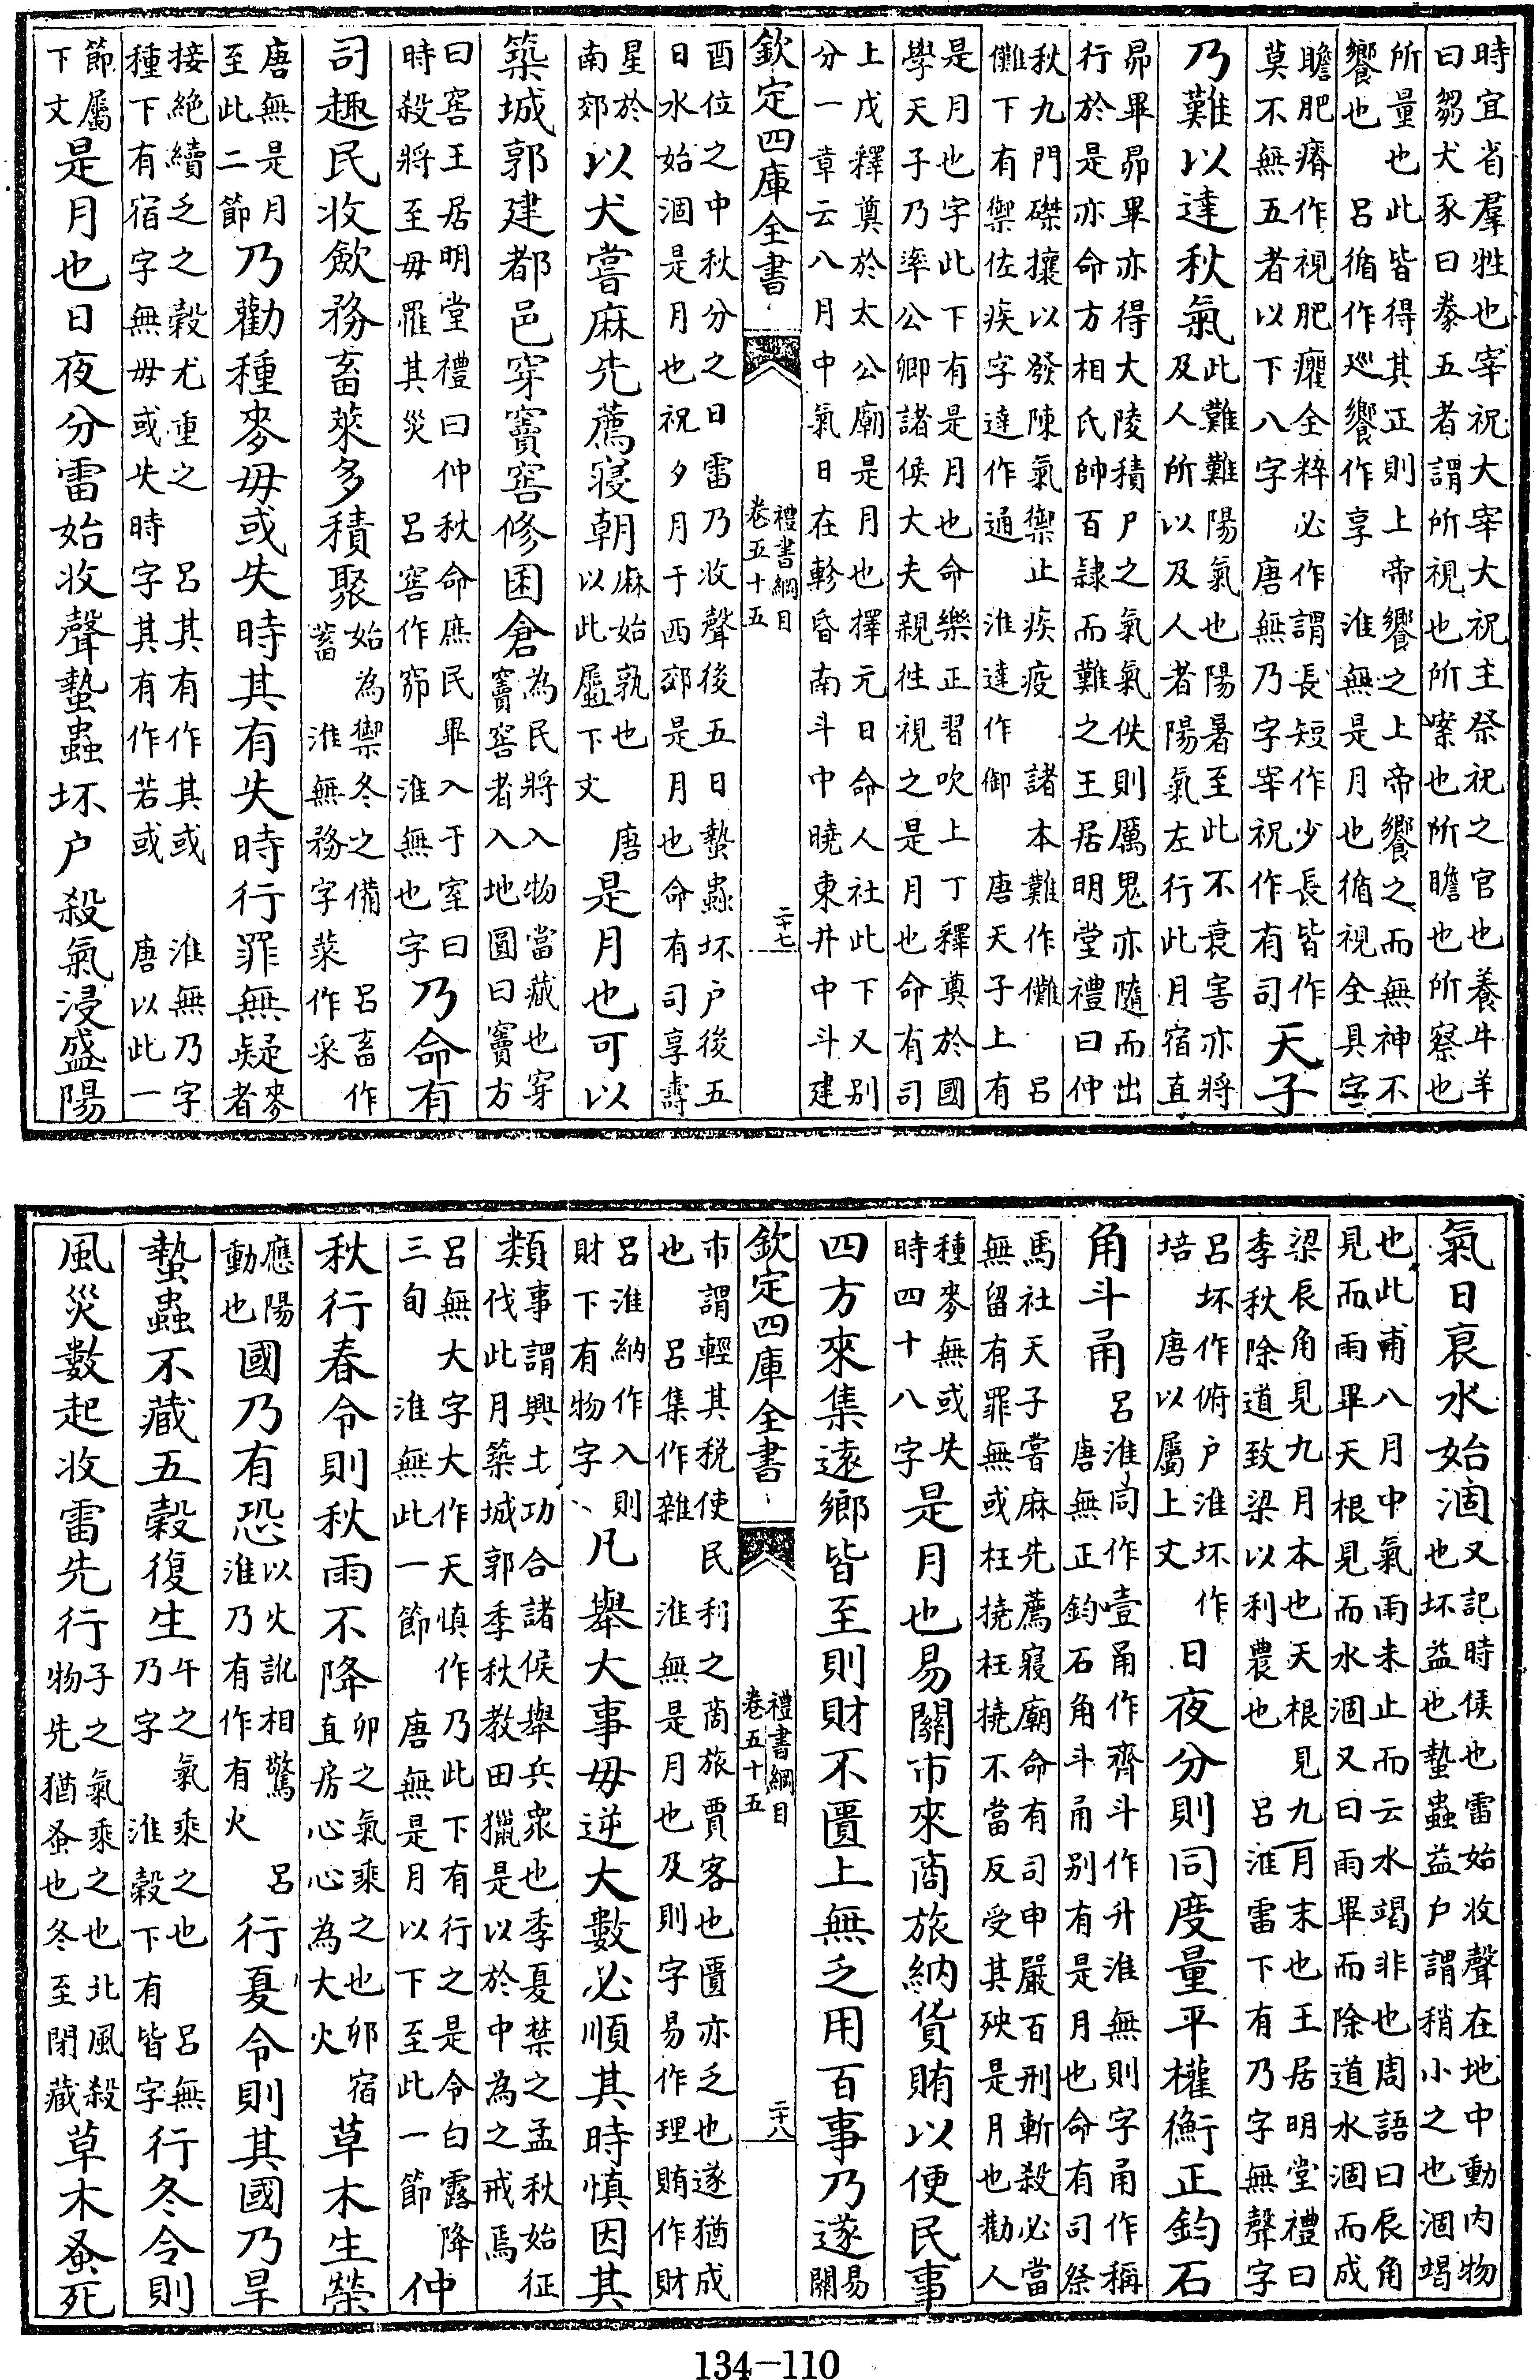 時宜省羣牲也宰祝大宰大祝主祭祀之官也養牛羊
曰芻犬豕曰豢五者謂所視也所案也所瞻也所察也
所量也此皆得其正則上帝饗之上帝饗之而無神不
饗也　呂循作巡饗作享　淮無是月也循視全具字
瞻肥瘠作視肥臞全粹必作謂長短作少長皆作
莫不無五者以下八字　唐無乃字宰祝作有司
天子
乃難以達秋氣
此難難陽氣也陽暑至此不衰害亦將
及人所以及人者陽氣左行此月宿直
昴畢昴畢亦得大陵積尸之氣氣佚則厲鬼亦隨而出
行於是亦命方相氏帥百隸而難之王居明堂禮曰仲
秋九門磔攘以發陳氣禦止疾疫　諸本難作儺　呂
儺下有禦佐疾字達作通　淮達作御　唐天子上有
是月也字此下有是月也命樂正習吹上丁釋奠於國
學天子乃率公卿諸侯大夫親往視之是月也命有司
上戊釋奠於太公廟是月也擇元日命人社此下又别
分一章云八月中氣日在軫昏南斗中曉東井中斗建
欽定四庫全書
禮書綱目
卷五十五
二十七
酉位之中秋分之日雷乃收聲後五日蟄蟲坏户後五
日水始涸是月也祝夕月于西郊是月也命有司享壽
星於
南郊
以犬嘗麻先薦寢朝
麻始孰也　唐
以此屬下文
是月也可以
築城郭建都邑穿竇窖修囷倉
為民將入物當藏也穿
竇窖者入地圓曰竇方
曰窖王居明堂禮曰仲秋命庶民畢入于室曰
時殺將至毋罹其災　呂窖作窌　淮無也字
乃命有
司趣民收斂務畜菜多積聚
始為禦冬之備　呂畜作
蓄　淮無務字菜作采
唐無是月
至此二節
乃勸種麥毋或失時其有失時行罪無疑
麥
者
接絶續乏之穀尤重之　呂其有作其或　淮無乃字
種下有宿字無毋或失時字其有作若或　唐以此一
節屬
下文
是月也日夜分雷始收聲蟄蟲坏户殺氣浸盛陽
氣日衰水始涸
又記時候也雷始收聲在地中動內物
也坏益也蟄蟲益户謂稍小之也涸竭
也此甫八月中氣雨未止而云水竭非也周語曰辰角
見而雨畢天根見而水涸又曰雨畢而除道水涸而成
梁辰角見九月本也天根見九月末也王居明堂禮曰
季秋除道致梁以利農也　呂淮雷下有乃字無聲字
呂坏作俯户淮坏作
培　唐以屬上文
日夜分則同度量平權衡正鈞石
角斗甬
呂淮同作壹甬作齊斗作升淮無則字甬作稱
唐無正鈞石角斗甬别有是月也命有司祭
馬社天子嘗麻先薦寢廟命有司申嚴百刑斬殺必當
無留有罪無或枉撓枉撓不當反受其殃是月也勸人
種麥無或失
時四十八字
是月也易關市來商旅納貨賄以便民事
四方來集遠鄉皆至則財不匱上無乏用百事乃遂
易
關
欽定四庫全書
禮書綱目
卷五十五
二十八
市謂輕其稅使民利之商旅賈客也匱亦乏也遂猶成
也　呂集作雜　淮無是月也及則字易作理賄作財
呂淮納作入則
財下有物字
凡舉大事毋逆大數必順其時慎因其
類
事謂興土功合諸侯舉兵衆也季夏禁之孟秋始征
伐此月築城郭季秋教田獵是以於中為之戒焉
呂無大字大作天慎作乃此下有行之是令白露降
三旬　淮無此一節　唐無是月以下至此一節
仲
秋行春令則秋雨不降
卯之氣乘之也卯宿
直房心心為大火
草木生榮
應陽
動也
國乃有恐
以火訛相驚　呂
淮乃有作有火
行夏令則其國乃旱
蟄蟲不藏五穀復生
午之氣乘之也　呂無
乃字　淮穀下有皆字
行冬令則
風災數起收雷先行
子之氣乘之也北風殺
物先猶蚤也冬至閉藏
草木蚤死
134-110